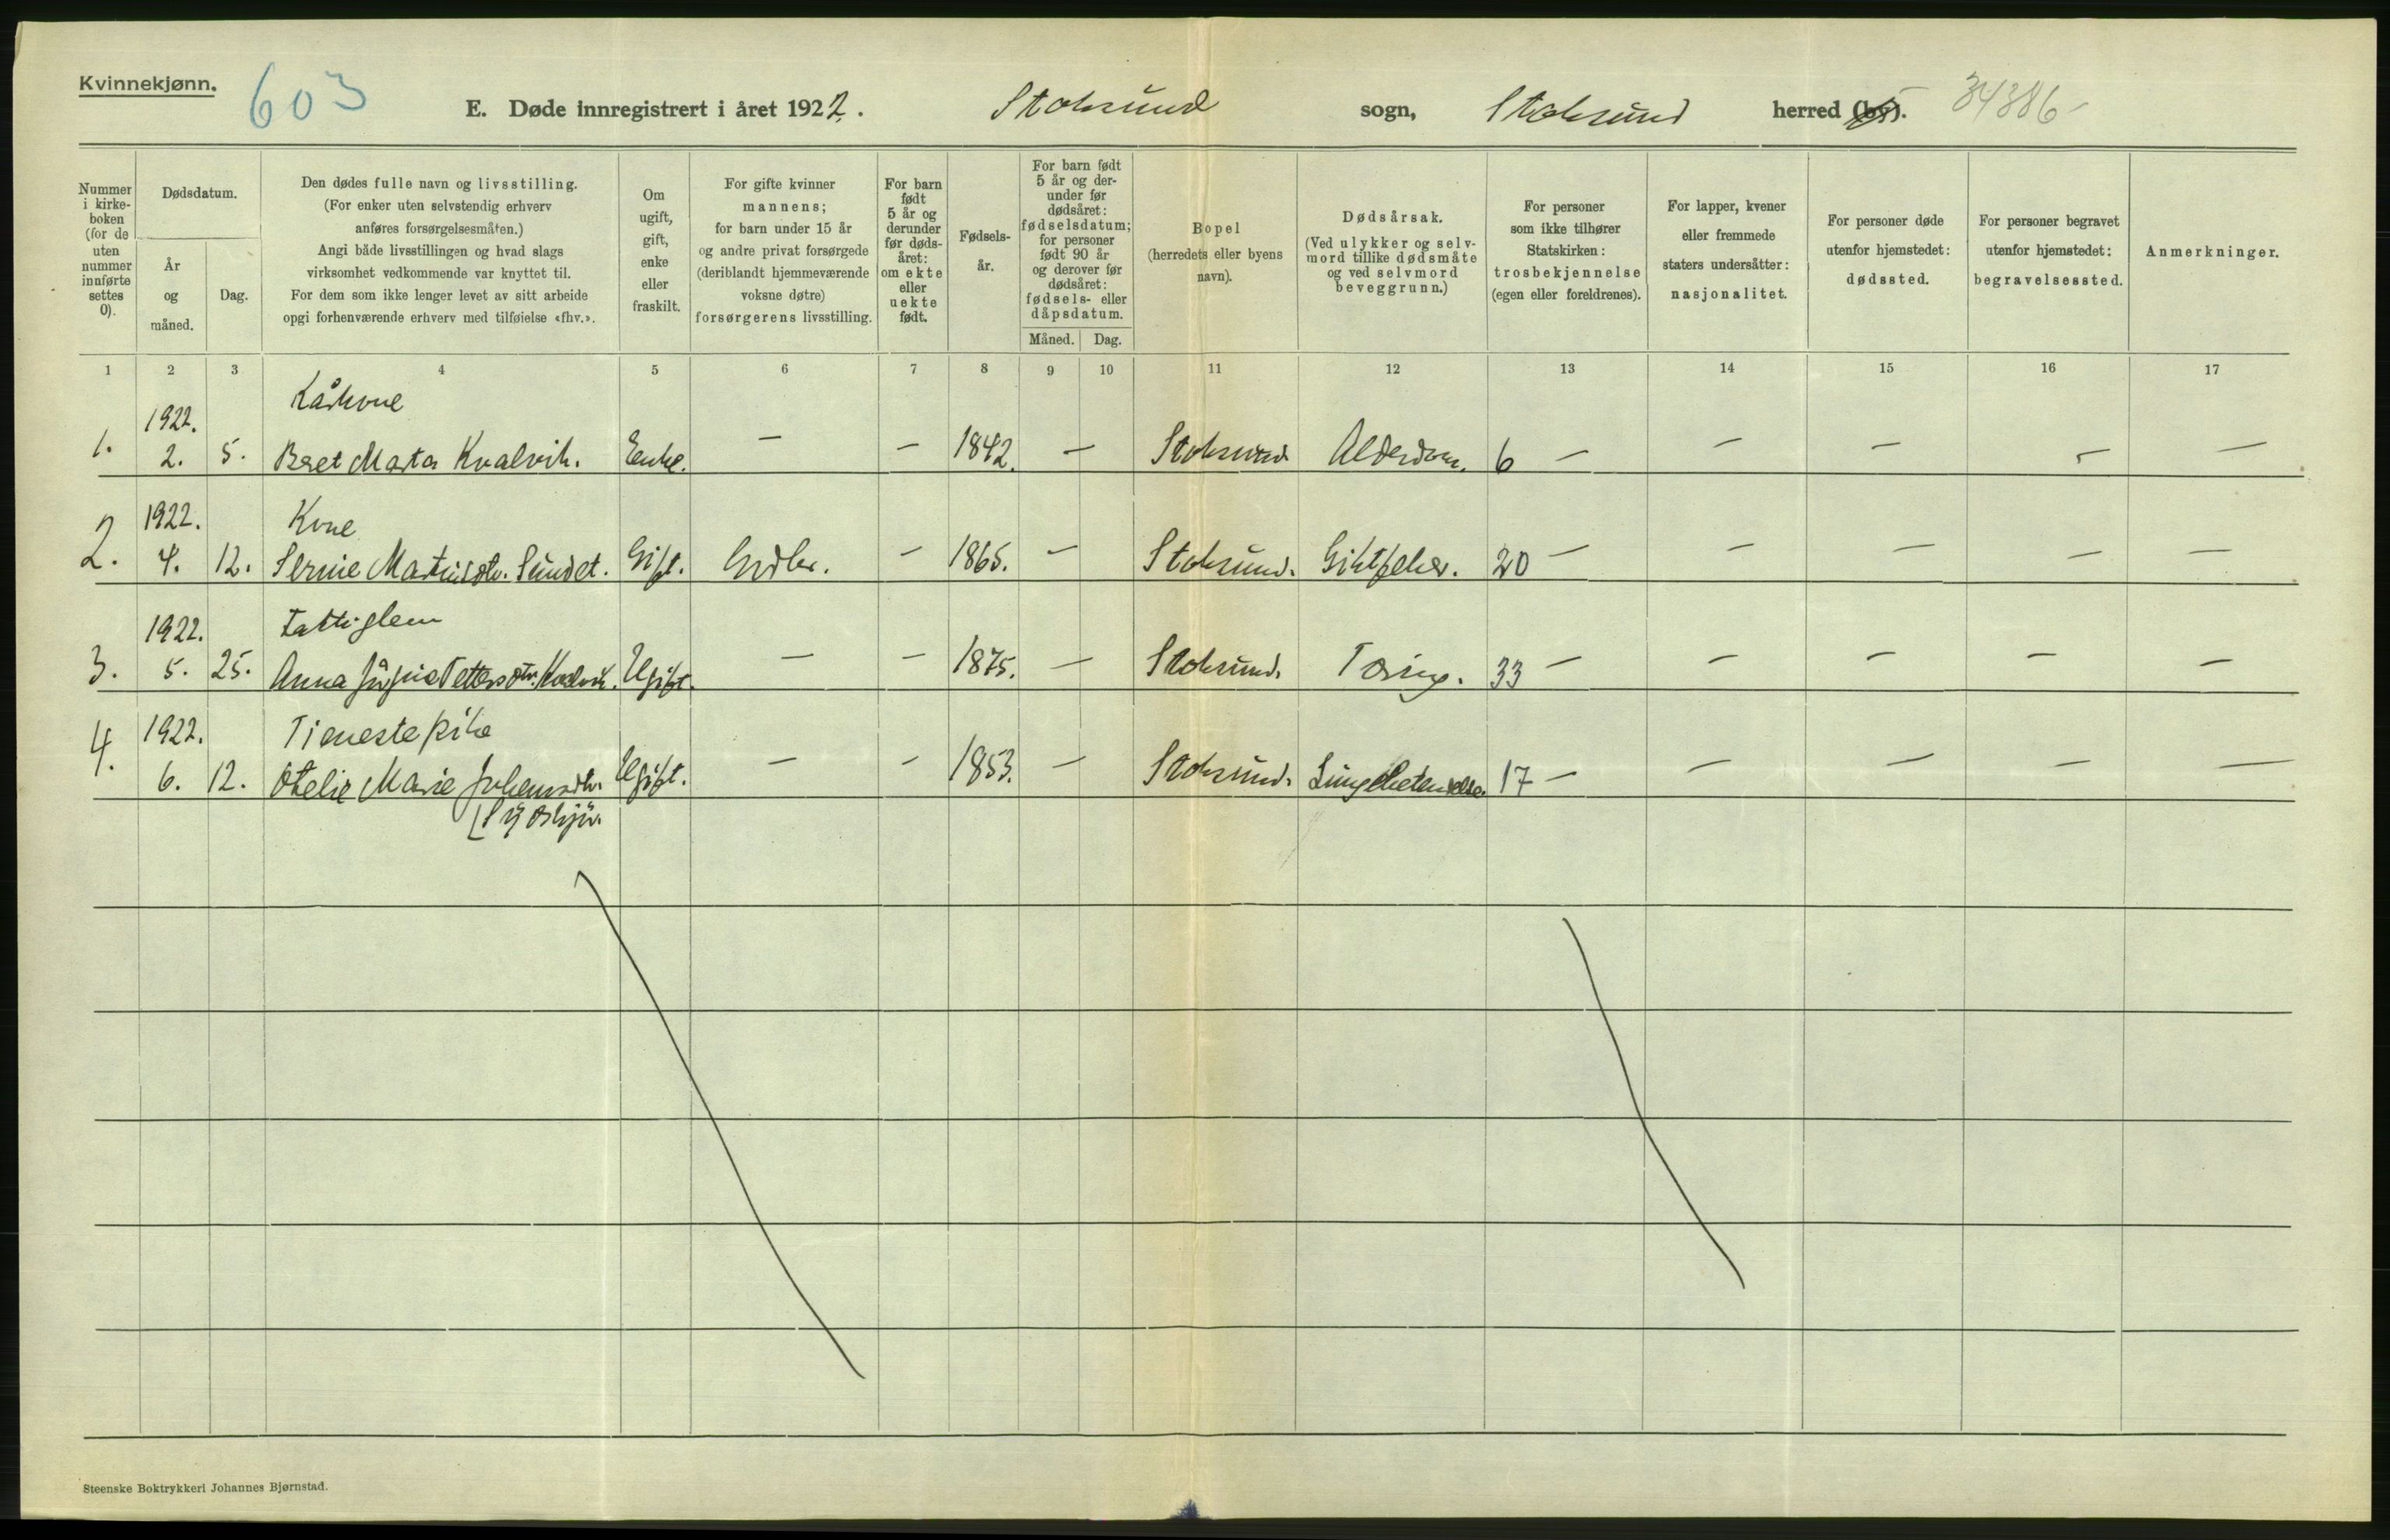 Kvinnekjønn.
603
E. Døde innregistrert i året 1922. Stoksund sogn, Stoksund herred (by). 34386-
Nummer i kirke-boken (for de uten nummer innførte settes 0).
Dødsdatum.
År og måned.
Dag.
Den dødes fulle navn og livsstilling.
(For enker uten selvstendig erhverv
anføres forsørgelsesmåten.)
Angi både livsstillingen og hvad slags
virksomhet vedkommende var knyttet til.
For dem som ikke lenger levet av sitt arbeide
opgi forhenværende erhverv med tilføielse «fhv.».
Om ugift, gift, enke eller fraskilt.
For gifte kvinner
mannens;
for barn under 15 år
og andre privat forsørgede
(deriblandt hjemmeværende
voksne døtre)
forsørgerens livsstilling.
For barn født 5 år og derunder før døds-året: om ekte eller uekte født.
Fødsels-år.
For barn født 5 år og der-under før dødsåret: fødselsdatum; for personer født 90 år og derover før dødsåret: fødsels- eller dåpsdatum.
Måned. Dag.
Bopel
(herredets eller byens
navn).
Dødsårsak.
(Ved ulykker og selv-
mord tillike dødsmåte
og ved selvmord
beveggrunn.)
For personer
som ikke tilhører
Statskirken:
trosbekjennelse
(egen eller foreldrenes).
For lapper, kvener
eller fremmede
staters undersåtter:
nasjonalitet.
For personer døde
utenfor hjemstedet:
dødssted.
For personer begravet
utenfor hjemstedet:
begravelsessted.
Anmerkninger.
1 2 3 4 5 6 7 8 9 10 11 12 13 14 15 16 17
1922. Kårkone
1. 2. 5. Beret Marta Kvalvik. Enke. — — 1842. — Stoksund Alderdom. 6 — — — — —
1922. Kone
2. 4. 12. Martinsdtr. Sundet. Gift. — 1865. — Stoksund. Giktfeber. 20 — — — — —
1922. Fattiglem
3. 5. 25. Anna Pettersdtr. Kvalvik. Ugift. — — 1875. — Stoksund. Tæring. 33 — — — — —
1922. Tienestepike
4. 6. 12. Otelie Marie Johensdtr. Ugift. — — 1853. — Stoksund. Lungebetendelse. 17 — — — — —
Steenske Boktrykkeri Johannes Bjørnstad.